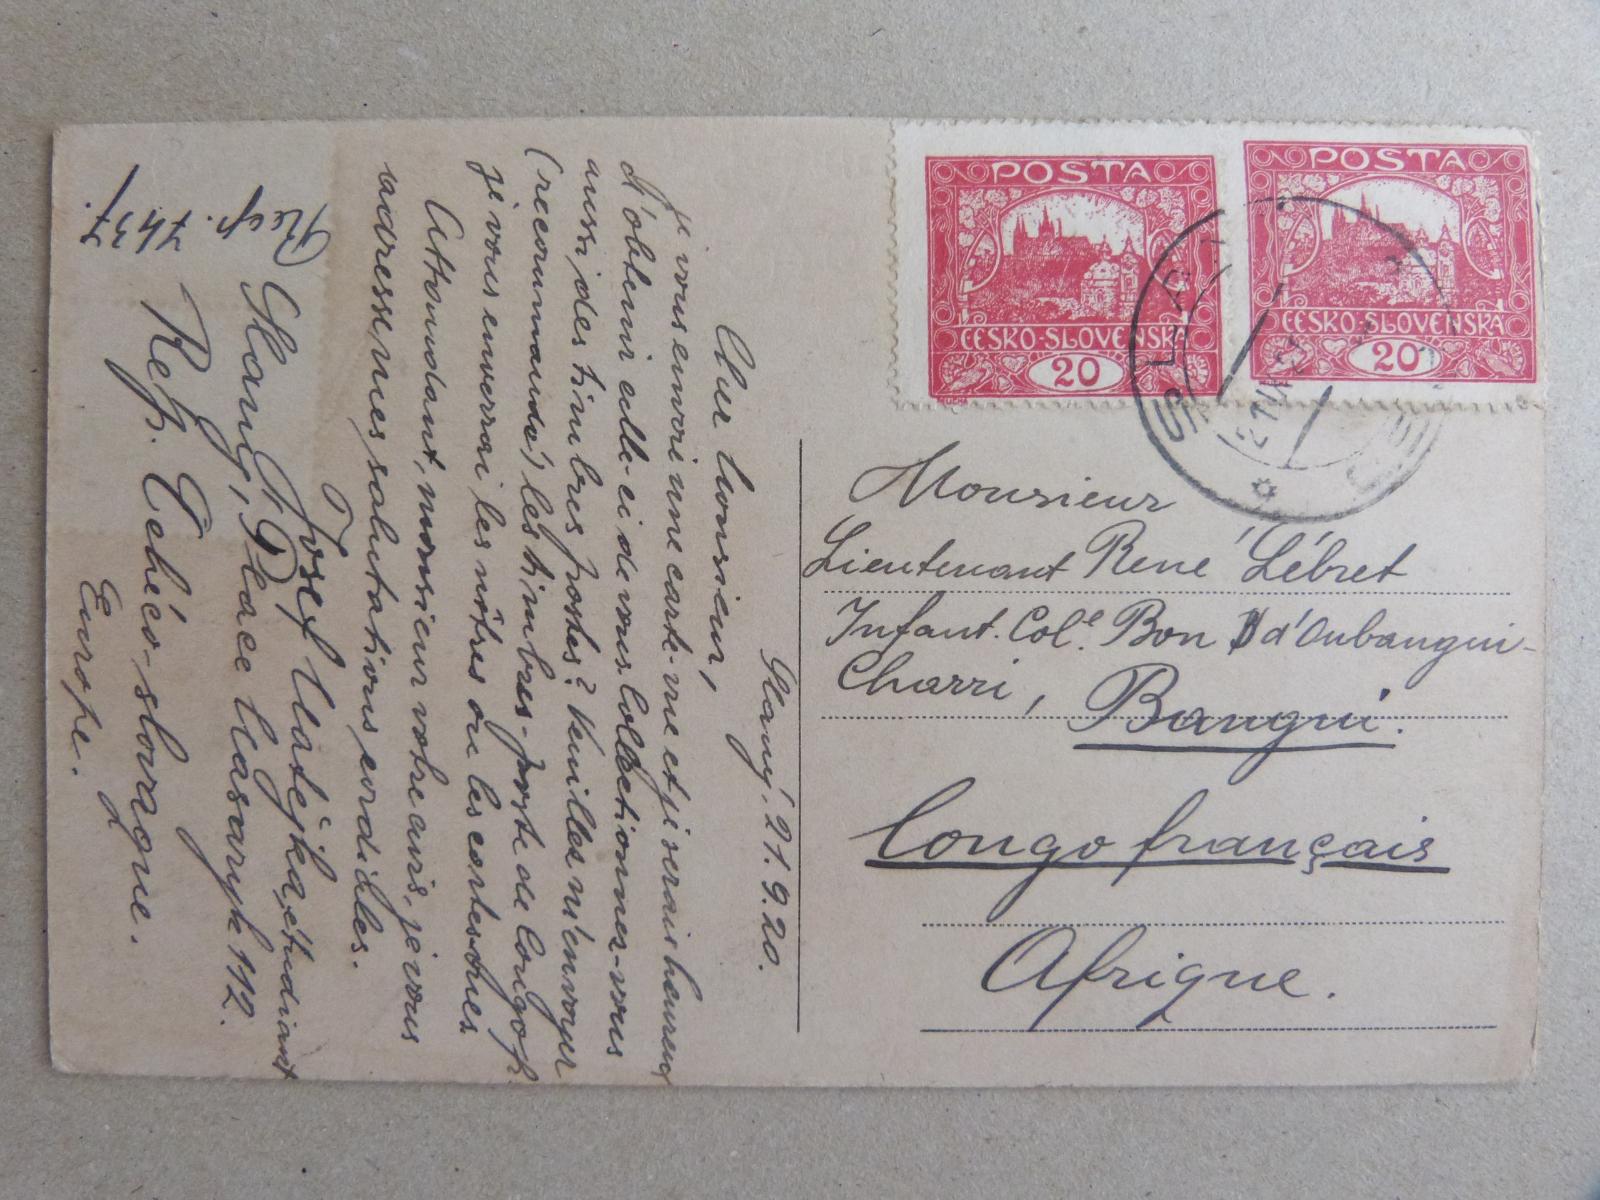 POSTA
ČESKO-SLOVENSKÁ
20
MUCHA
POSTA
ČESKO-SLOVENSKÁ
20
Monsieur
Lieutenant René Lébret
Infant. Col.e Bon d'Oubangui-
Charri, Bangui.
Congo français
Afrique.
Slaný. 21.9.20.
Monsieur,
je vous envoi une carte-vue et je serais heureux
d'obtenir celle-ci de vous. Collectionner-vous
aussi des timbres postes? Veuillez m'envoyer
(recommandé) les timbres-poste de Congo f.
je vous enverrai les nôtres ou les cartes-vues.
Attendant, monsieur votre avis, je vous
adresse mes salutations cordiales.
Josef Matějka, étudiant
Slaný, Place Masaryk 112.
Rép. Tchéco-slovaque.
Europe.
Récp. 7437.